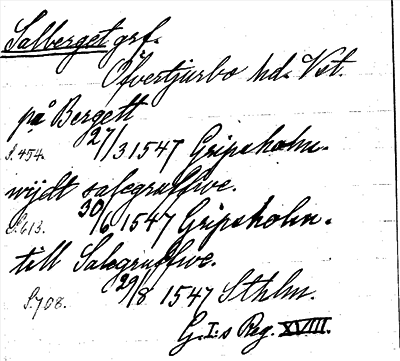 Salberget grf.
Öfvertjurbo hd. Vst.
på Bergett
27/3 1547 Gripsholm.
S. 454.
wijdt salegruffwe.
30/6 1547 Gripsholm.
S. 613.
till Salegruffwe.
29/8 1547 Sthlm.
S. 708.
G. I:s Reg. XVIII.